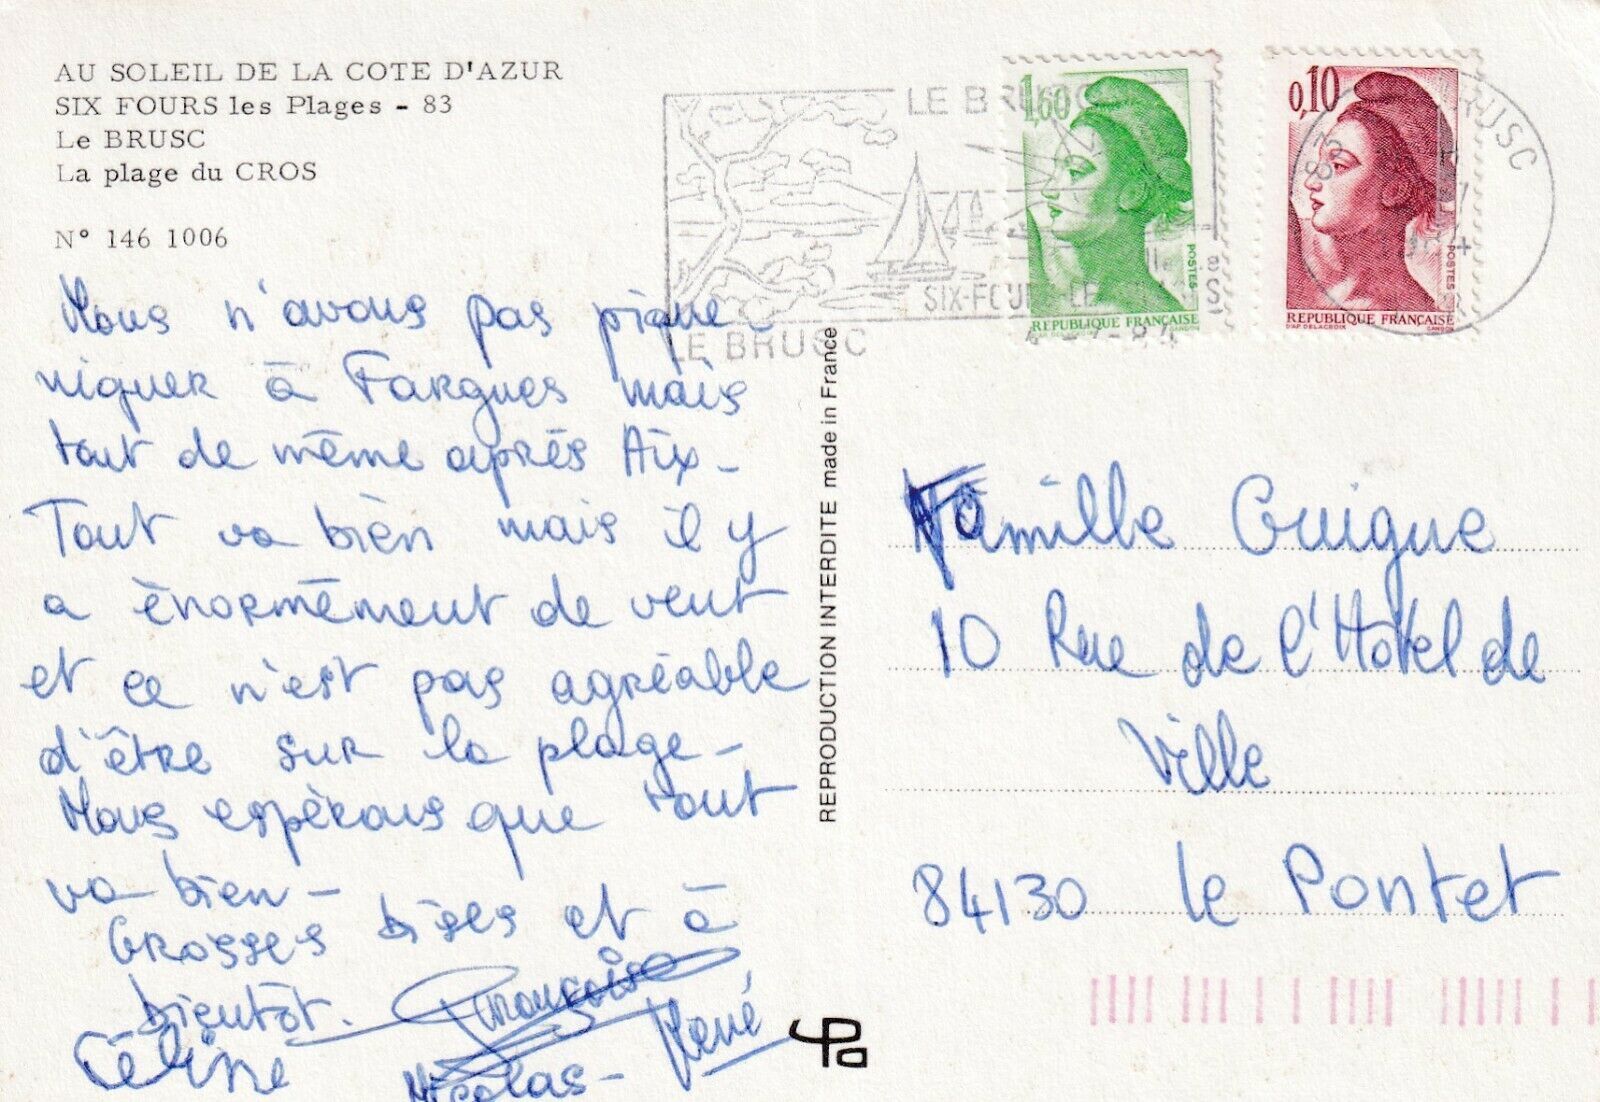 AU SOLEIL DE LA COTE D'AZUR
SIX FOURS les Plages - 83
Le BRUSC
La plage du CROS
N° 146 1006
Nous n'avons pas pique-
niquer à Fargues mais
tout de même après Aix-
Tout va bien mais il y
a énormément de vent
et ce n'est pas agréable
d'être sur la plage-
Nous espérons que tout
va bien-
Grosses bises et à
bientôt. Françoise
Céline Nicolas- René
REPRODUCTION INTERDITE made in France
LE BRUSC
SIX-FOURS-LE
LE BRUSC
1,60
POSTES
REPUBLIQUE FRANÇAISE
GANDON
0,10
POSTES
REPUBLIQUE FRANÇAISE
D'AP DELACROIX GANDON
BRUSC
Famille Guigue
10 Rue de l'Hôtel de
Ville
84130 Le Pontet